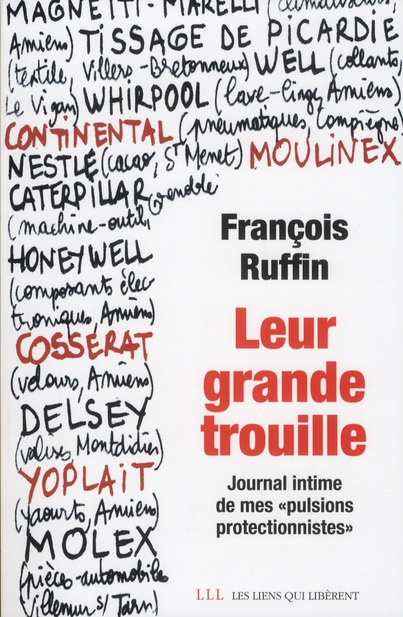 MAGNETTI-MARELLI (climatiseurs,
Amiens) TISSAGE DE PICARDIE
(textile, Villers-Bretonneux) WELL (collants,
Le Vigan) WHIRPOOL (lave-linge, Amiens)
CONTINENTAL (pneumatiques, Compiègne)
NESTLÉ (cacao, St Menet) MOULINEX
CATERPILLAR Grenoble
(machine-outil,
HONEYWELL
(composants élec
troniques, Amiens)
COSSERAT
(velours, Amiens)
DELSEY
(valises, Montdidier)
YOPLAIT
(yaourts, Amiens)
MOLEX
(pièces-automobile
Villemur s/ Tarn)
François
Ruffin
Leur
grande
trouille
Journal intime
de mes «pulsions
protectionnistes»
LLL LES LIENS QUI LIBÈRENT